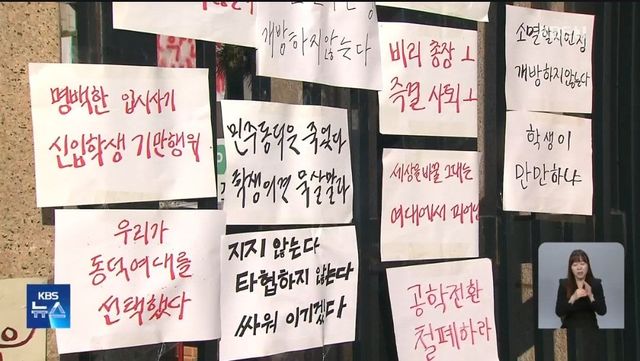 개방하지않는다
비리 총장
즉결 사퇴
소멸할지언정
개방하지않는다
명백한 입시사기
신입학생 기만행위
민주동덕은 죽었다
학생의견 묵살말라
세상을 바꿀 그대는
여대에서 피어난
학생이
만만하냐
우리가
동덕여대를
선택했다
지지 않는다
타협하지 않는다
싸워 이기겠다
공학전환
철폐하라
KBS
뉴스